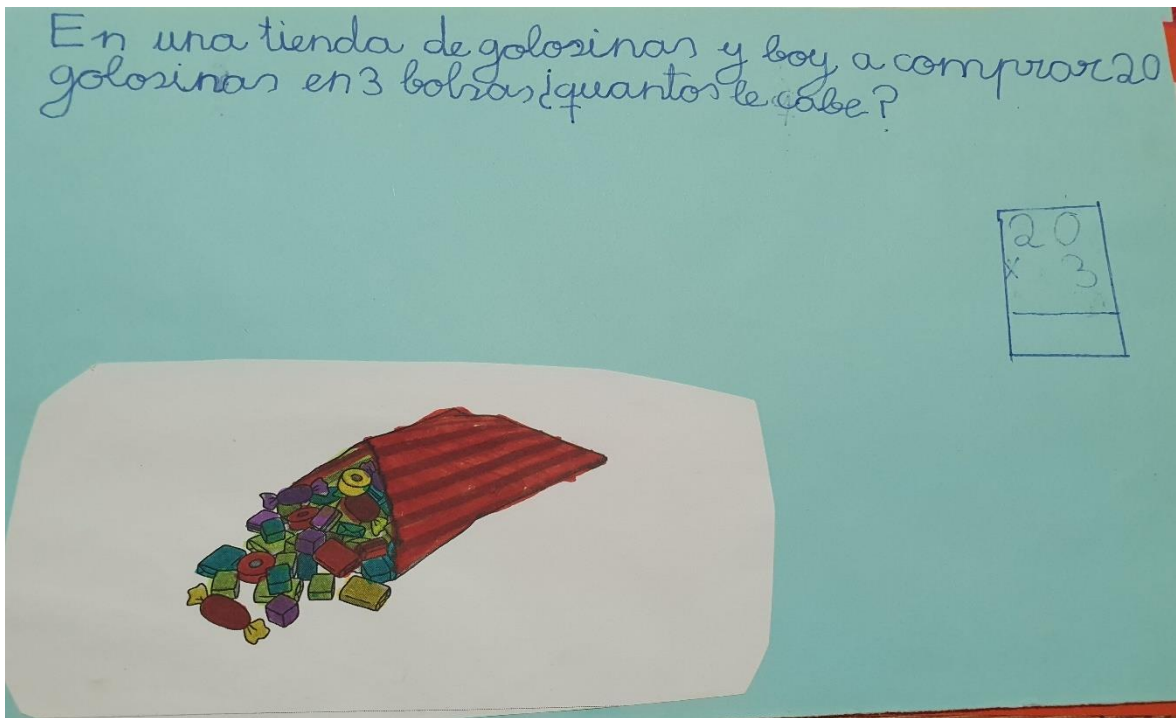 En una tienda de golosinas y boy a comprar 20
golosinas en 3 bolsas ¿quantos le cabe?
20
x 3